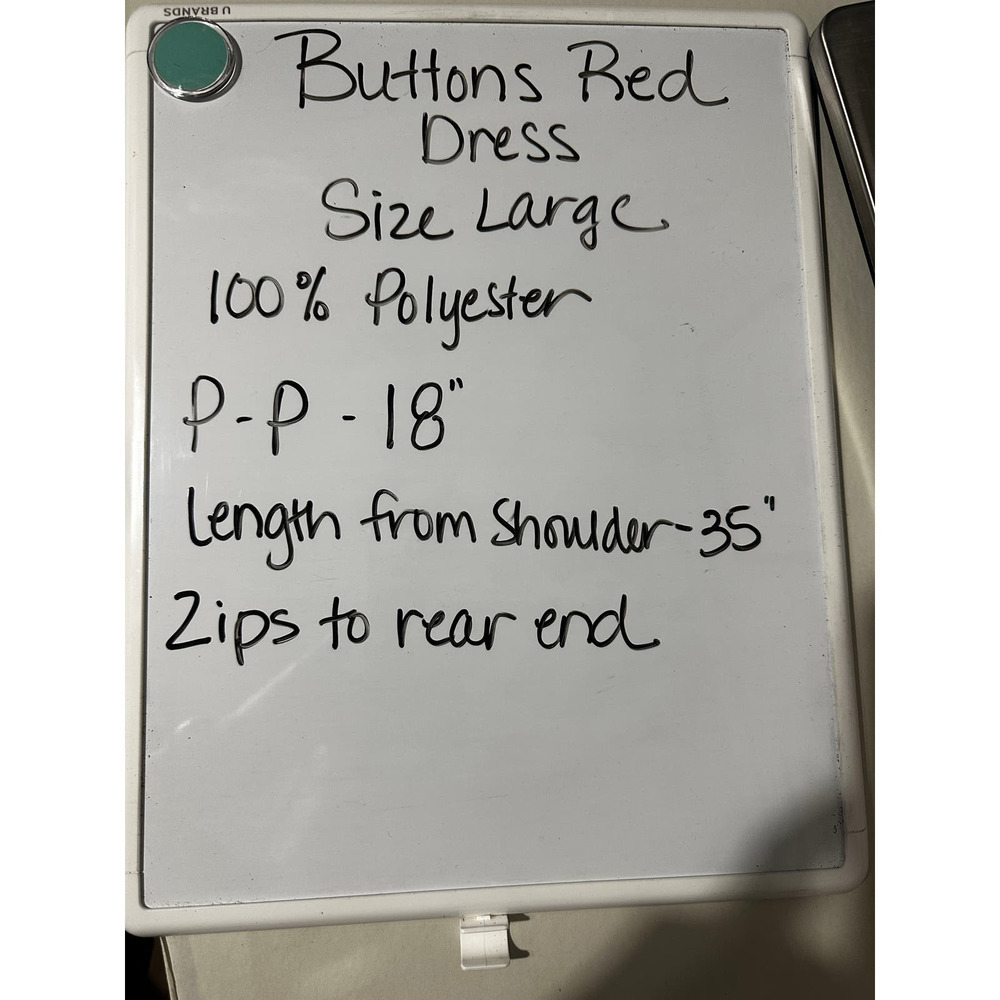 U BRANDS
Buttons Red
Dress
Size Large
100% Polyester
P-P - 18"
Length from Shoulder-35"
Zips to rear end